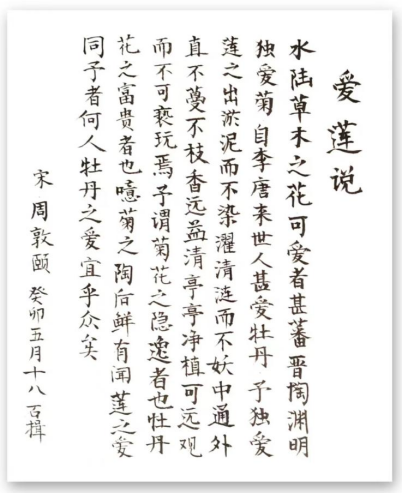 爱莲说
水陆草木之花可爱者甚蕃晋陶渊明
独爱菊自李唐来世人甚爱牡丹予独爱
莲之出淤泥而不染濯清涟而不妖中通外
直不蔓不枝香远益清亭亭净植可远观
而不可亵玩焉予谓菊花之隐逸者也牡丹
花之富貴者也噫菊之陶后鲜有闻莲之爱
同予者何人牡丹之爱宜乎众矣
宋周敦颐癸卯五月十八百揖